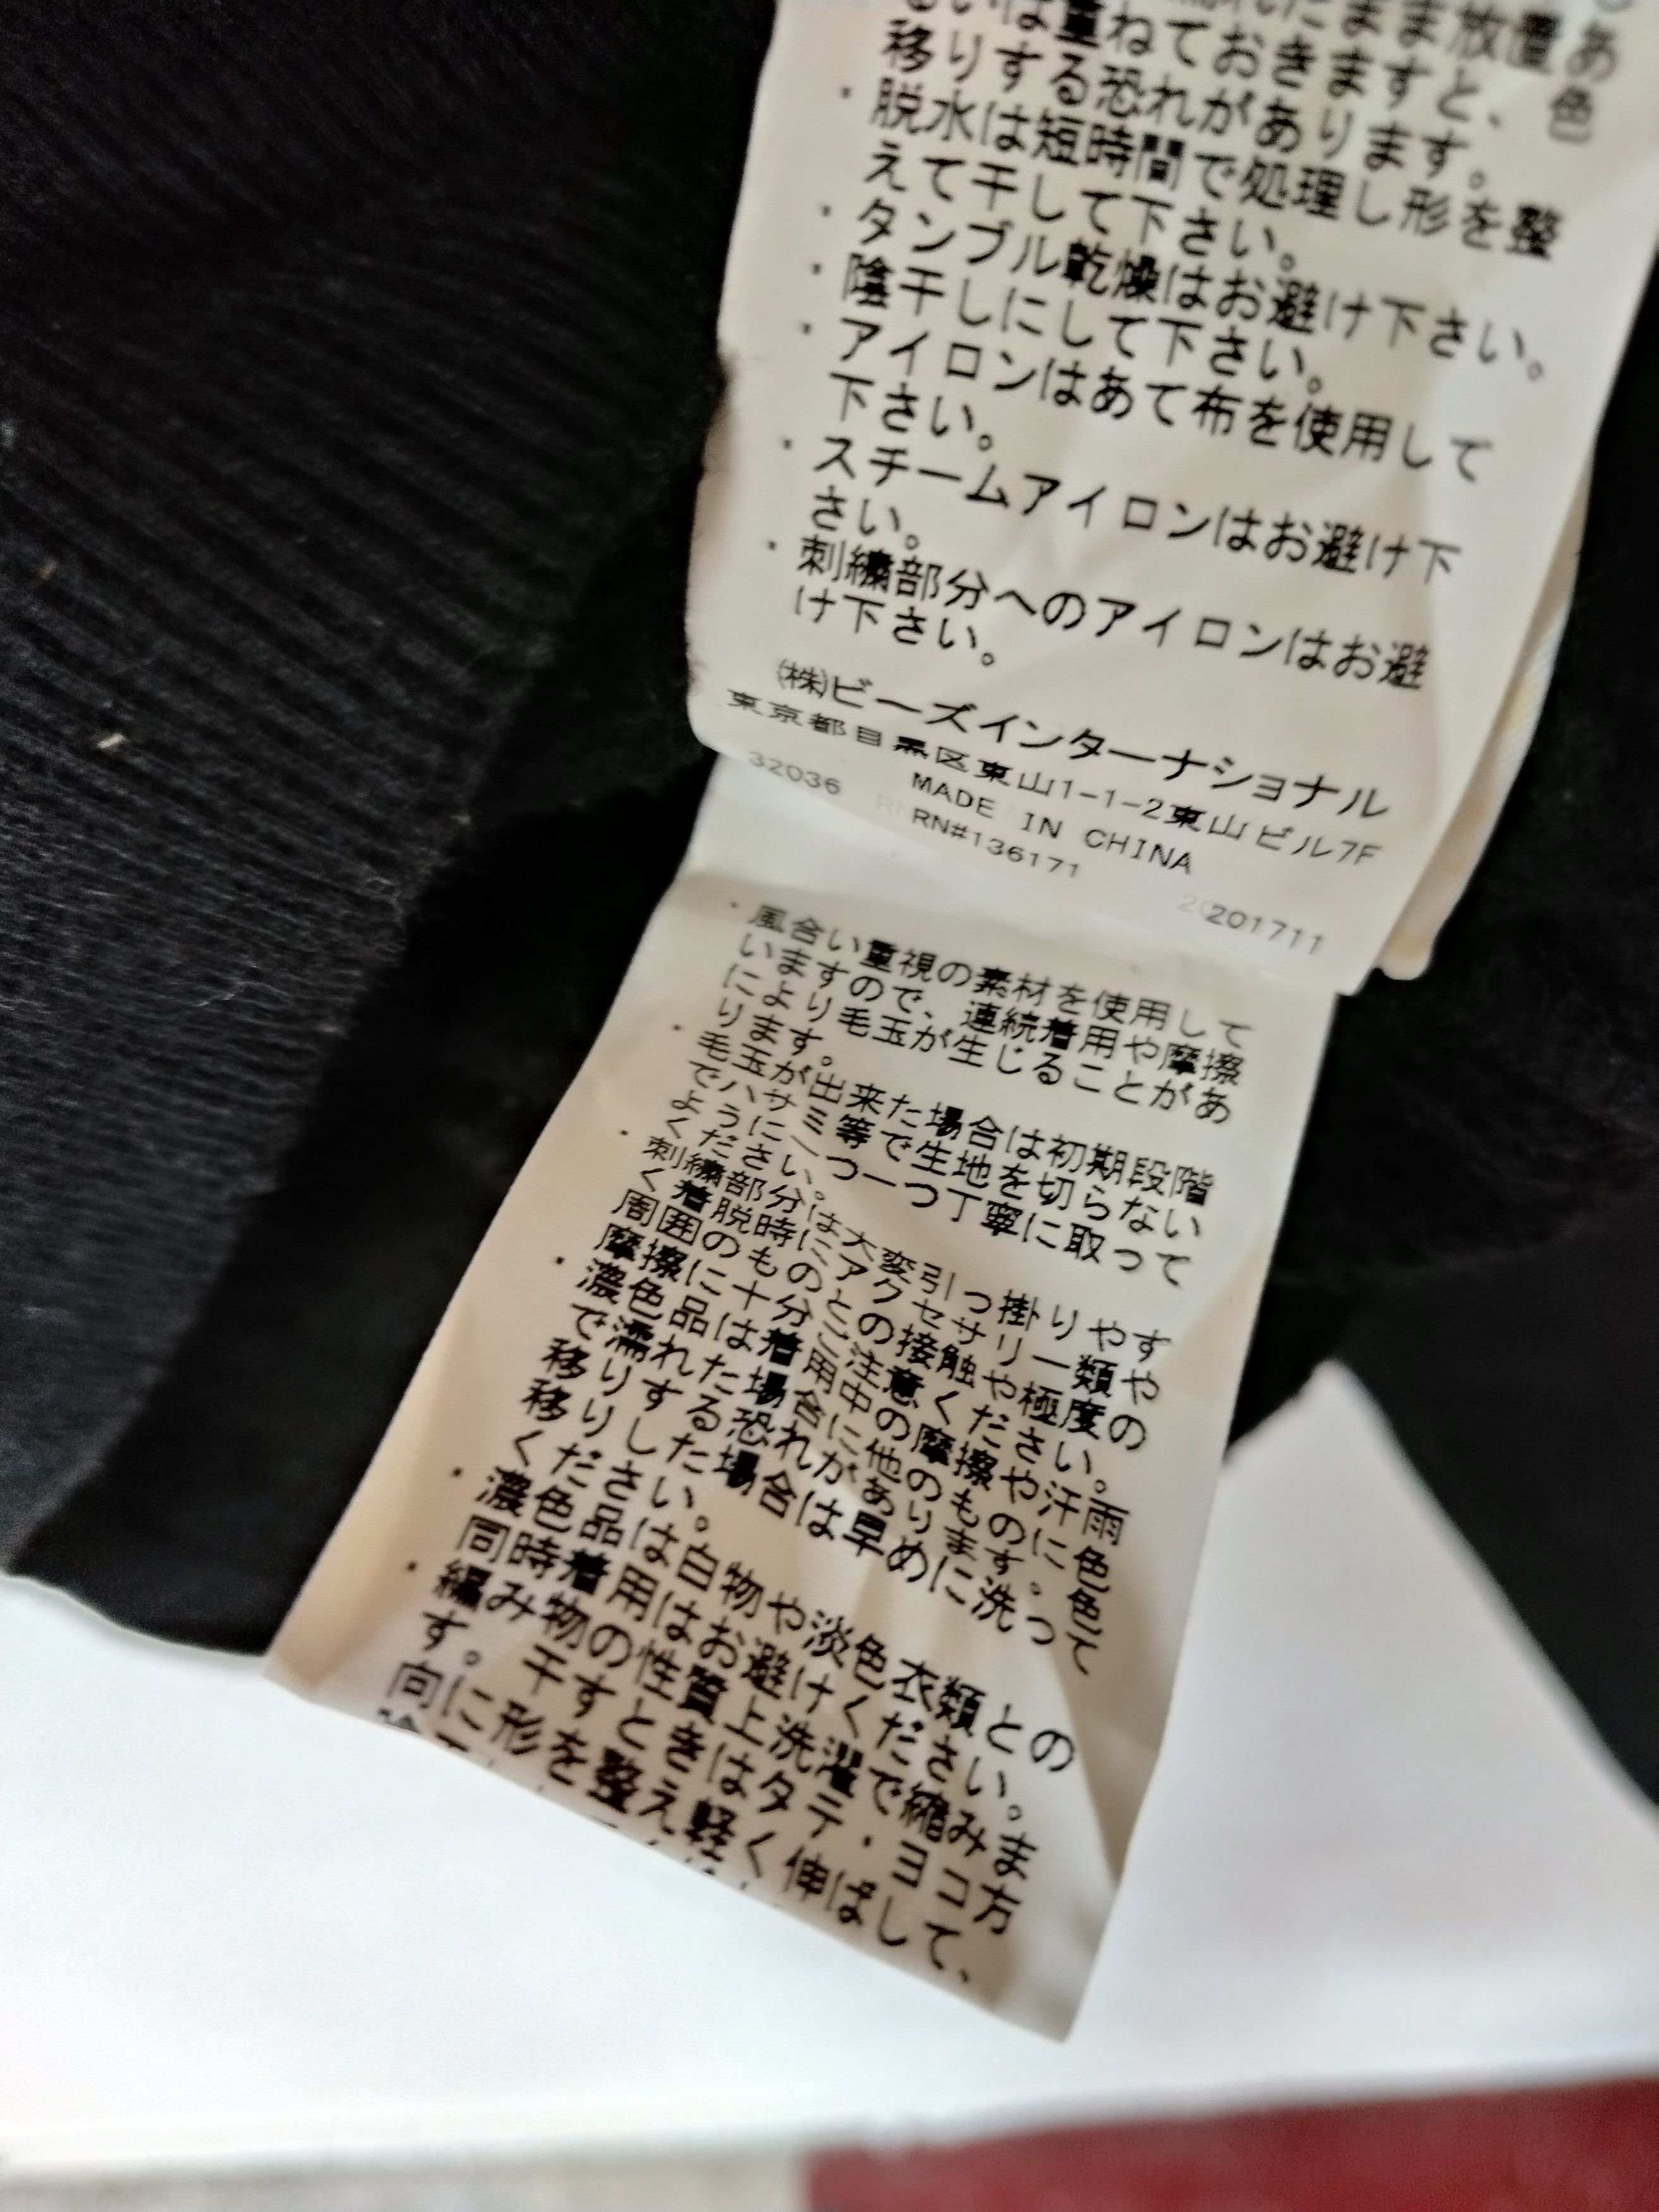 まま放置あ
いは重ねておきますと、色
移りする恐れがあります。
・脱水は短時間で処理し形を整
えて干して下さい。
・タンブル乾燥はお避け下さい。
・陰干しにして下さい。
・アイロンはあて布を使用して
下さい。
・スチームアイロンはお避け下
さい。
・刺繍部分へのアイロンはお避
け下さい。
㈱ビーズインターナショナル
東京都目黒区東山1-1-2東山ビル7F
32036 MADE IN CHINA
RN#136171
201711
・風合い重視の素材を使用して
いますので、連続着用や摩擦
により毛玉が生じることがあ
ります。
・毛玉が出来た場合は初期段階
でハサミ等で生地を切らない
ように一つ一つ丁寧に取って
ください。
・刺繍部分は大変引っ掛りやす
く着脱時にアクセサリー類や
周囲のものとの接触や極度の
摩擦に十分ご注意ください。
・濃色品は着用中の摩擦や汗雨
で濡れた場合に他のものに色
移りする恐れがあります。色
移りした場合は早めに洗って
ください。
・濃色品は白物や淡色衣類との
同時着用はお避けください。
・編み物の性質上洗濯で縮みま
す。干すときはタテ・ヨコ方
向に形を整え軽く伸ばして、